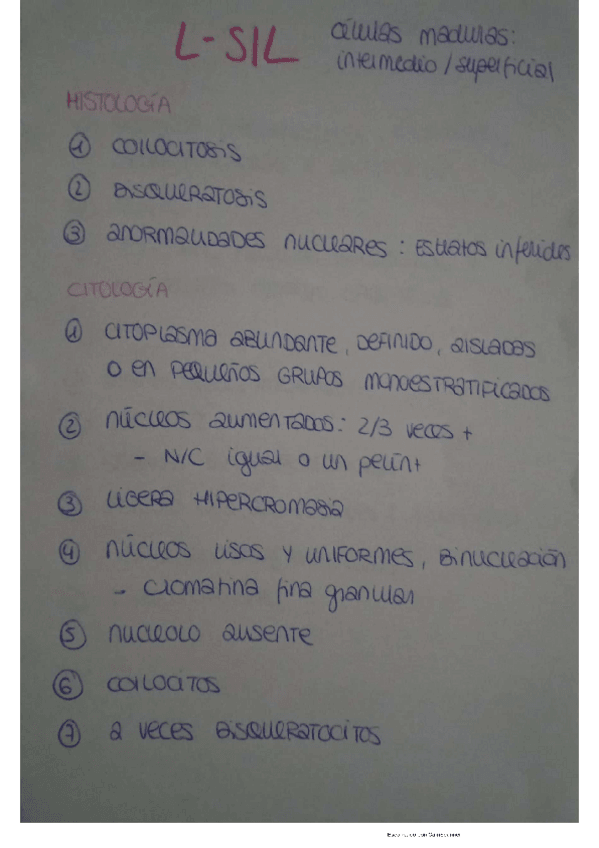 L-SIL
células maduras:
intermedio / superficial
HISTOLOGÍA
① COILOCITOSIS
② DISQUERATOSIS
③ ANORMALIDADES NUCLEARES : Estratos inferiores
CITOLOGÍA
① CITOPLASMA ABUNDANTE, DEFINIDO, AISLADAS
O en PEQUEÑOS GRUPOS MONOESTRATIFICADOS
② NÚCLEOS AUMENTADOS: 2/3 veces +
- N/C igual o un pelín+
③ LIGERA HIPERCROMASIA
④ NÚCLEOS LISOS Y UNIFORMES, BINUCLEACIÓN
- Cromatina fina granular
⑤ NUCLEOLO AUSENTE
⑥ COILOCITOS
⑦ A VECES DISQUERATOCITOS
Escaneado con CamScanner